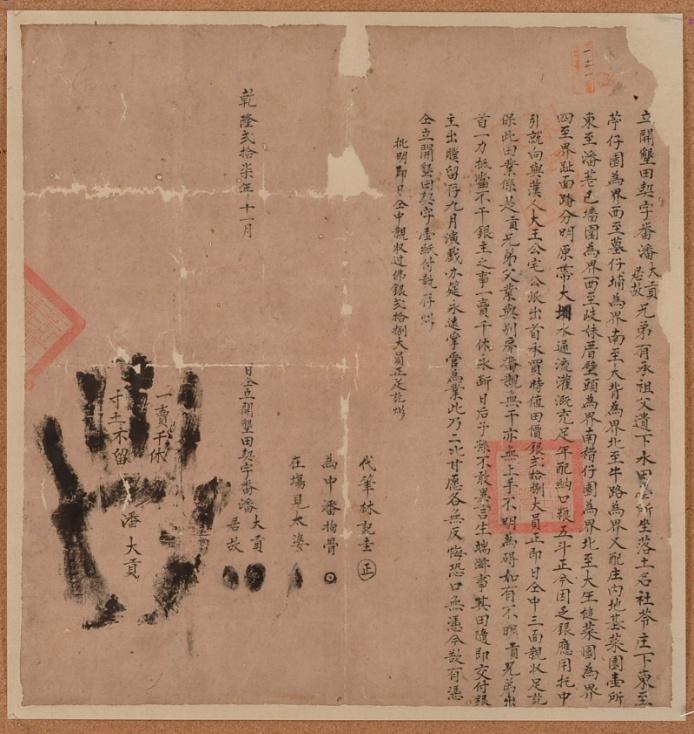 立開墾田契字番潘大貢 居故 兄弟有承祖父遺下水田壹所坐落土名社苓庄下東至
苧仔園為界西至墓仔埔為界南至大背為界北至牛路為界又配庄內地基菜園壹所
東至潘 巴墻園為界西至 妹厝壁頭為界南 仔園為界北至大王 菜園為界
四至界趾面踏分明原帶大圳水通流灌溉充足年配納口粮五斗正今因乏銀應用托中
引就向與漢人大王公宅公派出首承買時值田價銀弍拾捌大員正即日仝中三面親收足訖
保此田業係是貢兄弟父業與別房番親無干亦無上手不明為碍如有不明貢兄弟出
首一力抵當不干銀主之事一賣千休永斷日后子孫不敢異言生端滋事其田隨即交付銀
主出 留存九月演戲办筵永遠掌管為業此乃二比甘應各無反悔恐口無憑今欲有憑
仝立開墾田契字壹紙付執存炤
批明即日仝中親收过佛銀弍拾捌大員正足訖炤
代筆林記圭 正
為中潘拘骨
在塲見太婆
日仝立開墾田契字番潘 大貢 居故
乾隆弍拾柒年十一月
一賣千休
寸土不留
潘大貢